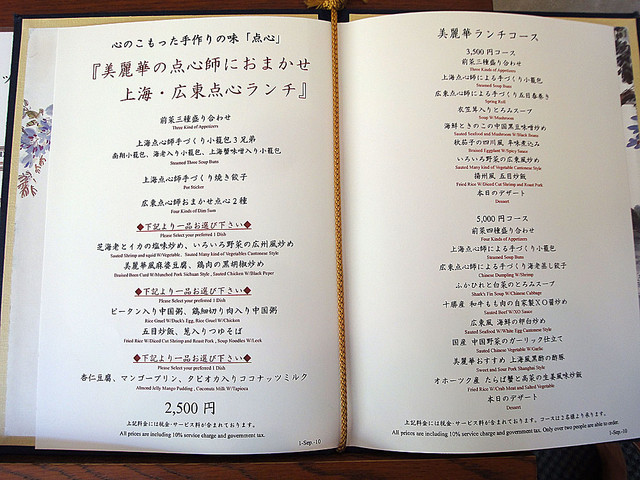 心のこもった手作りの味「点心」
『美麗華の点心師におまかせ
上海・広東点心ランチ』
前菜三種盛り合わせ
Three Kind of Appetizers
上海点心師手づくり小籠包3兄弟
南翔小籠包、海老入り小籠包、上海蟹味噌入り小籠包
Steamed Three Soup Buns
上海点心師手づくり焼き餃子
Pot Sticker
広東点心師おまかせ点心2種
Four Kinds of Dim Sum
◆下記より一品お選び下さい◆
Please Select your preferred 1 Dish
芝海老とイカの塩味炒め、いろいろ野菜の広州風炒め
Sauted Shrimp and squid W/Vegetable, Sauted Many kind of Vegetables Cantonese Style
美麗華風麻婆豆腐、鶏肉の黒胡椒炒め
Braised Bean Curd W/Munched Pork Sichuan Style, Sauted Chicken W/Black Peper
◆下記より一品お選び下さい◆
Please Select your preferred 1 Dish
ピータン入り中国粥、鶏細切り肉入り中国粥
Rice Gruel W/Duck's Egg, Rice Gruel W/Chicken
五目炒飯、葱入りつゆそば
Fried Rice W/Diced Cut Shrimp and Roast Pork, Soup Noodles W/Leek
◆下記より一品お選び下さい◆
Please Select your preferred 1 Dish
杏仁豆腐、マンゴープリン、タピオカ入りココナッツミルク
Almond Jelly Mango Pudding, Coconuts Milk W/Tapioca
2,500 円
上記料金には税金・サービス料が含まれております。
All prices are including 10% service charge and government tax.
1-Sep.-10
美麗華ランチコース
3,500円コース
前菜三種盛り合わせ
Three Kinds of Appetizers
上海点心師による手づくり小籠包
Steamed Soup Buns
広東点心師による手づくり五目春巻き
Spring Roll
衣笠茸入りとろみスープ
Soup W/Mushroom
海鮮ときのこの中国黒豆味噌炒め
Sauted Seafood and Mushroom W/Black Beans
秋茄子の四川風 辛味煮込み
Braised Eggplant W/Spicy Sauce
いろいろ野菜の広東風炒め
Sauted Many kind of Vegetable Cantonese Style
揚州風 五目炒飯
Fried Rice W/Diced Cut Shrimp and Roast Pork
本日のデザート
Dessert
5,000円コース
前菜四種盛り合わせ
Four Kinds of Appetizers
上海点心師による手づくり小籠包
Steamed Soup Buns
広東点心師による手づくり海老蒸し餃子
Chinese Dumpling W/Shrimp
ふかひれと白菜のとろみスープ
Shark's Fin Soup W/Chinese Cabbage
十勝産 和牛もも肉の自家製XO醤炒め
Sauted Beef W/XO Sauce
広東風 海鮮の卵白炒め
Sauted Seafood W/White Egg Cantonese Style
国産 中国野菜のガーリック仕立て
Sauted Chinese Vegetable W/Garlic
美麗華おすすめ 上海風黒酢の酢豚
Sweet and Sour Pork Shanghai Style
オホーツク産 たらば蟹と高菜の生姜風味炒飯
Fried Rice W/Crab Meat and Salted Vegetable
本日のデザート
Dessert
上記料金には税金・サービス料が含まれております。コースは2名様より承ります。
All prices are including 10% service charge and government tax. Only over two people are able to order.
1-Sep.-10